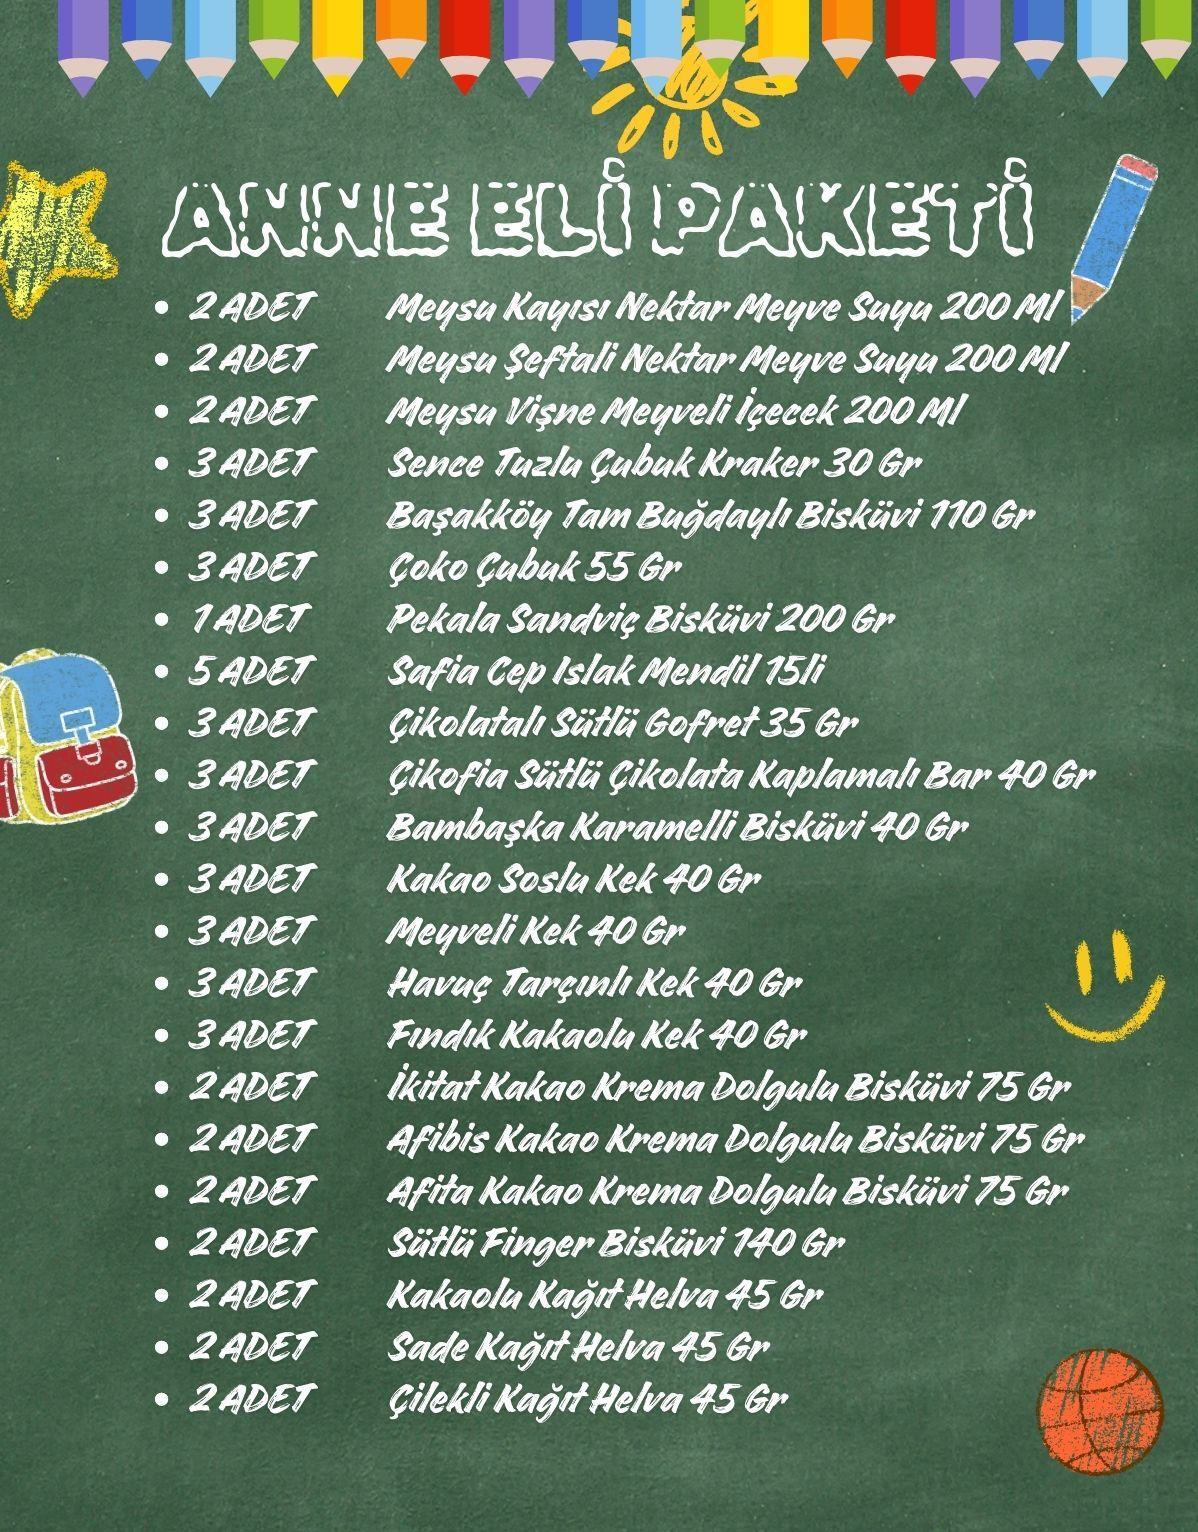 ANNE ELİ PAKETİ
• 2 ADET Meysu Kayısı Nektar Meyve Suyu 200 Ml
• 2 ADET Meysu Şeftali Nektar Meyve Suyu 200 Ml
• 2 ADET Meysu Vişne Meyveli İçecek 200 Ml
• 3 ADET Sence Tuzlu Çubuk Kraker 30 Gr
• 3 ADET Başakköy Tam Buğdaylı Bisküvi 110 Gr
• 3 ADET Çoko Çubuk 55 Gr
• 1 ADET Pekala Sandviç Bisküvi 200 Gr
• 5 ADET Safia Cep Islak Mendil 15li
• 3 ADET Çikolatalı Sütlü Gofret 35 Gr
• 3 ADET Çikofia Sütlü Çikolata Kaplamalı Bar 40 Gr
• 3 ADET Bambaşka Karamelli Bisküvi 40 Gr
• 3 ADET Kakao Soslu Kek 40 Gr
• 3 ADET Meyveli Kek 40 Gr
• 3 ADET Havuç Tarçınlı Kek 40 Gr
• 3 ADET Fındık Kakaolu Kek 40 Gr
• 2 ADET İkitat Kakao Krema Dolgulu Bisküvi 75 Gr
• 2 ADET Afibis Kakao Krema Dolgulu Bisküvi 75 Gr
• 2 ADET Afita Kakao Krema Dolgulu Bisküvi 75 Gr
• 2 ADET Sütlü Finger Bisküvi 140 Gr
• 2 ADET Kakaolu Kağıt Helva 45 Gr
• 2 ADET Sade Kağıt Helva 45 Gr
• 2 ADET Çilekli Kağıt Helva 45 Gr